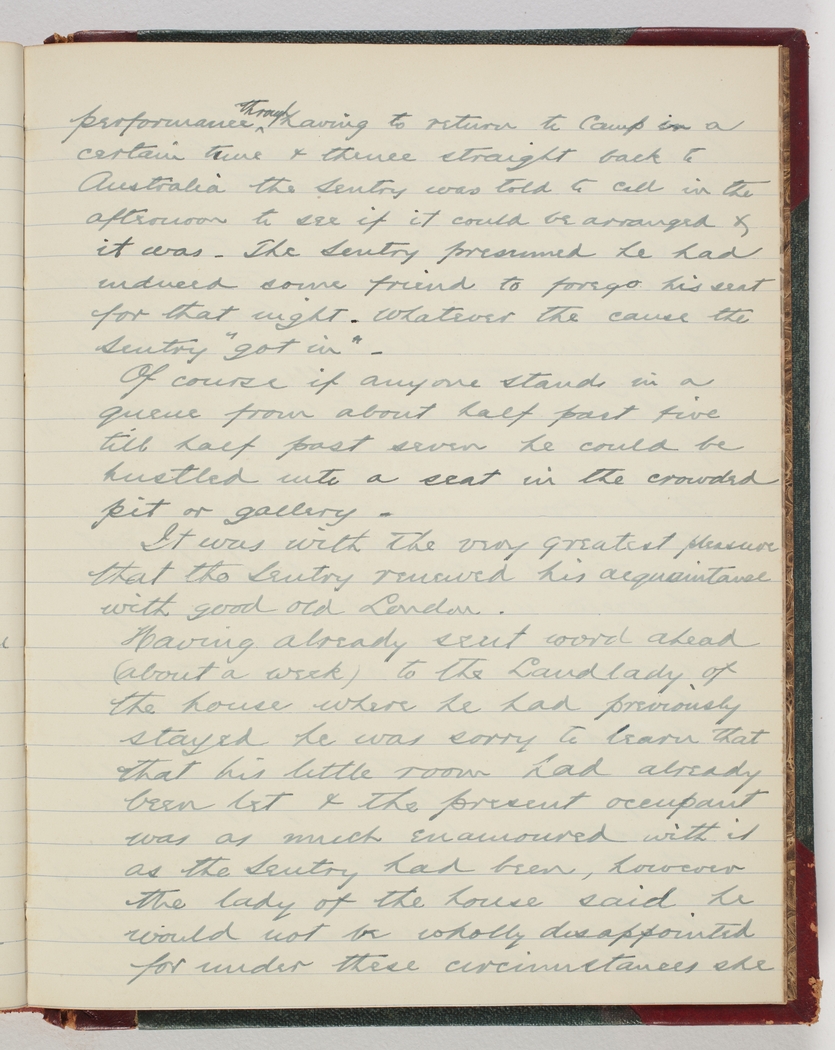 performance, through having to return to Camp in a
certain time & thence straight back to
Australia the Sentry was told to call in the
afternoon to see if it could be arranged &
it was - The Sentry presumed he had
induced some friend to forego his seat
for that night. Whatever the cause the
Sentry "got in" -
Of course if anyone stands in a
queue from about half past five
till half past seven he could be
hustled into a seat in the crowded
pit or gallery -
It was with the very greatest pleasure
that the Sentry renewed his acquaintance
with good old London.
Having already sent word ahead
(about a week) to the Landlady of
the house where he had previously
stayed he was sorry to learn that
that his little room had already
been let & the present occupant
was as much enamoured with it
as the Sentry had been, however
the lady of the house said he
would not be wholly disappointed
for under these circumstances she